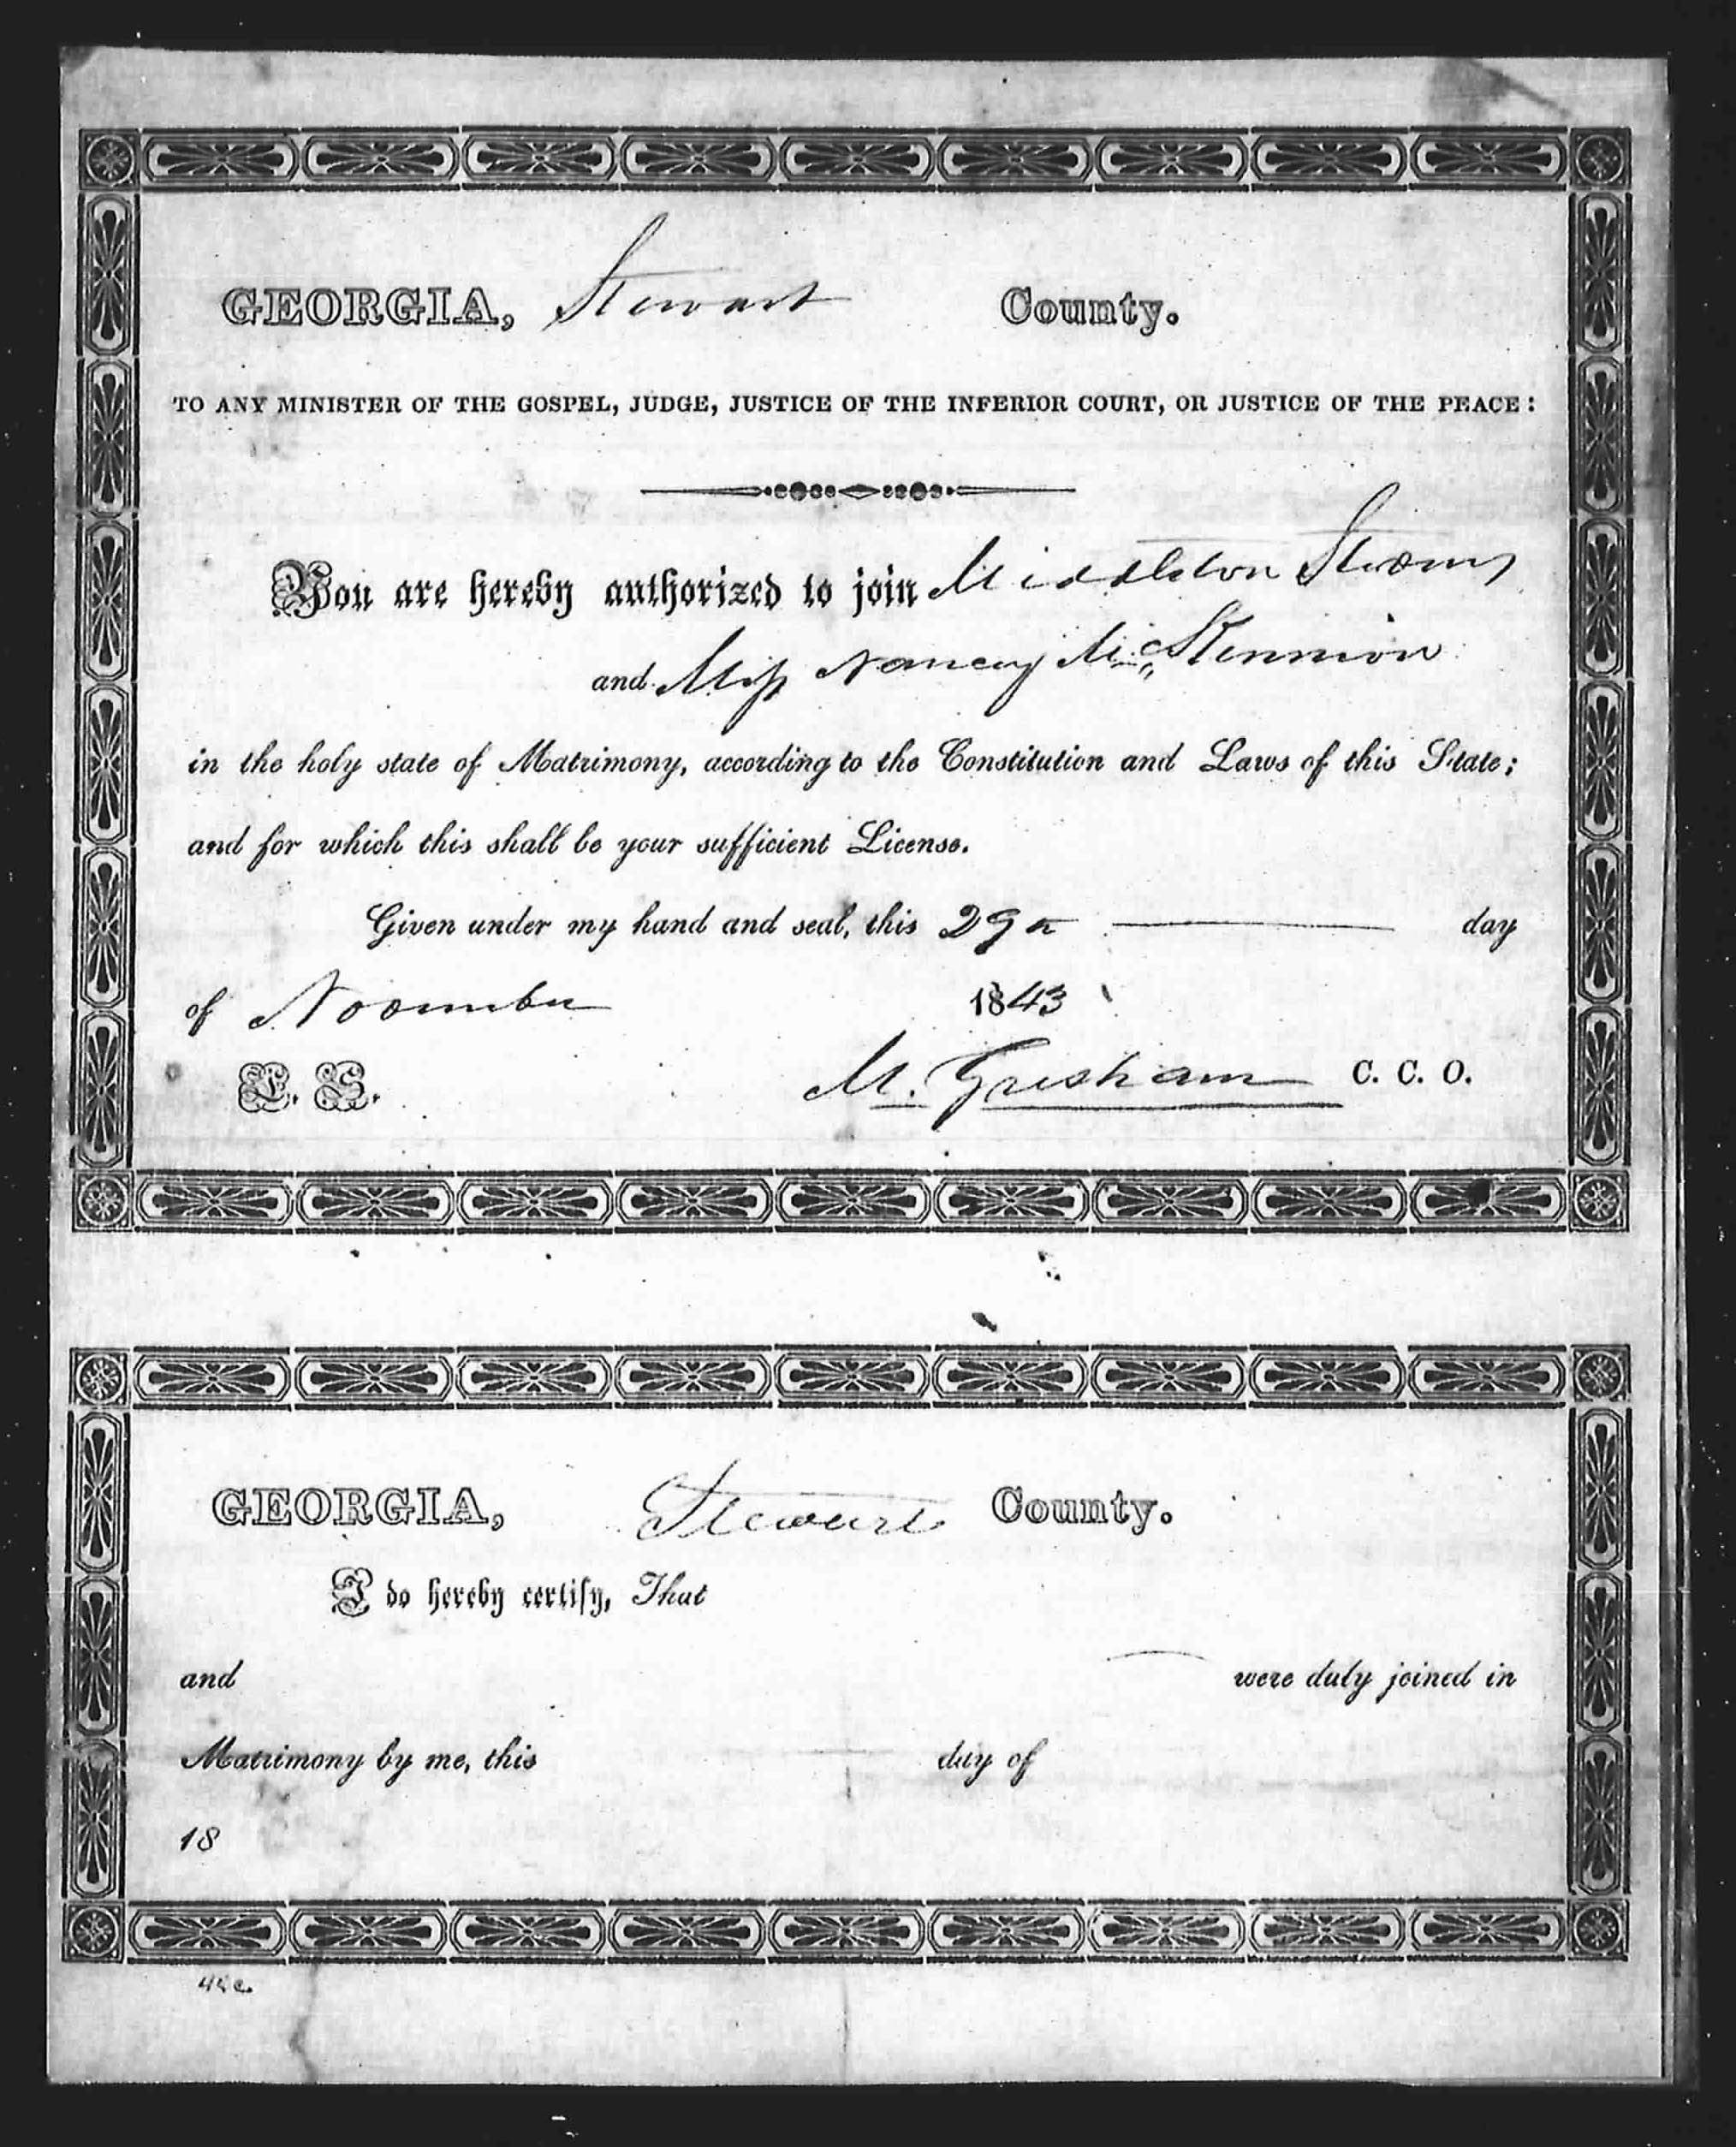 GEORGIA, Stewart County.
TO ANY MINISTER OF THE GOSPEL, JUDGE, JUSTICE OF THE INFERIOR COURT, OR JUSTICE OF THE PEACE:
You are hereby authorized to join Middleton
and Miss Nancy
in the holy state of Matrimony, according to the Constitution and Laws of this State;
and for which this shall be your sufficient License.
Given under my hand and seal, this 29th day
of November 1843
L. S. M. Gresham C. C. O.
GEORGIA, Stewart County.
I do hereby certify, That
and were duly joined in
Matrimony by me, this day of
18